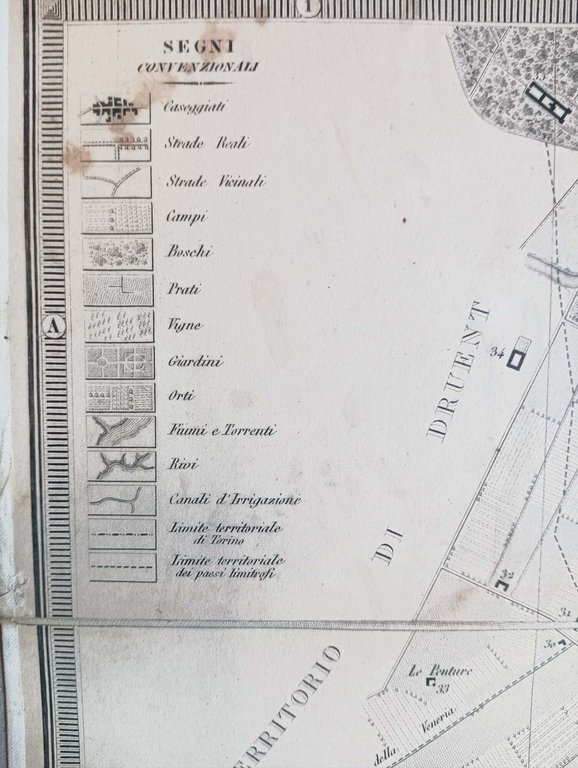 1
SEGNI
CONVENZIONALI
Caseggiati
Strade Reali
Strade Vicinali
Campi
Boschi
Prati
Vigne
Giardini
Orti
Fiumi e Torrenti
Rivi
Canali d'Irrigazione
Limite territoriale
di Torino
Limite territoriale
dei paesi limitrofi
A
35
34
32
31
30
TERRITORIO DI DRUENT
Le Ponture
33
della Veneria